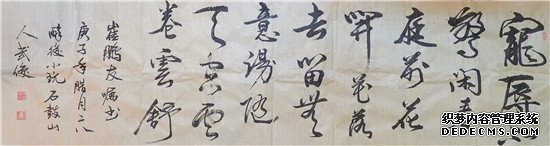 寵辱不
驚闲看
庭前花
開花落
去留無
意漫随
天空雲
卷雲舒
崔鹏友嘱书
庚子年腊月二八
醉後小玩石鼓山
人武
织梦内容管理系统
DEDECMS.COM